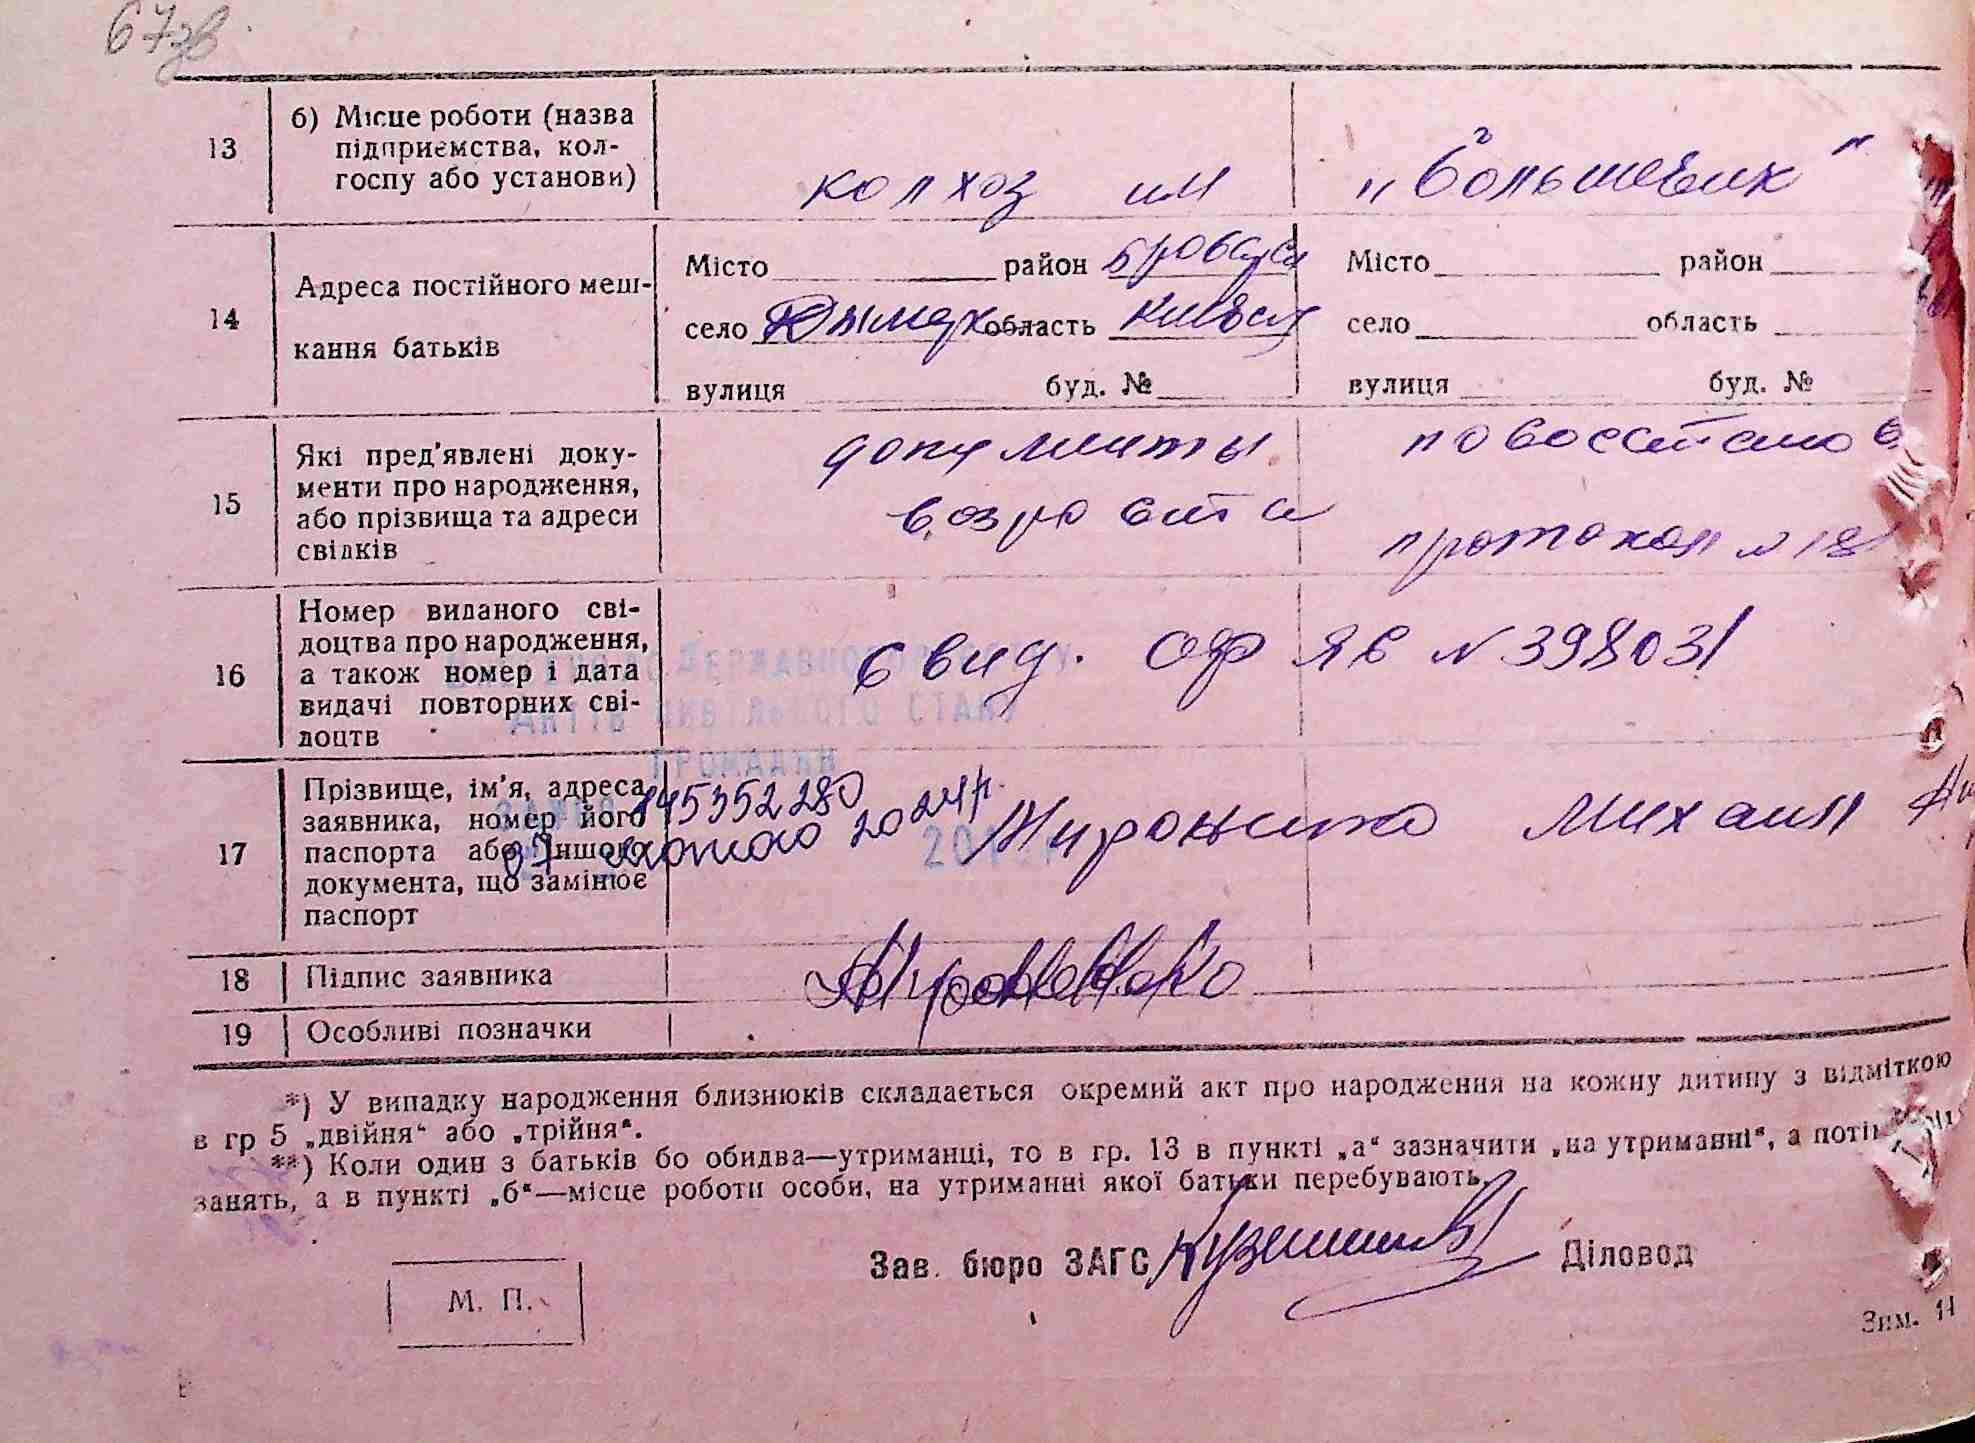 67зв
13
б) Місце роботи (назва
підприємства, кол-
госпу або установи)
колхоз им "Большевик"
14
Адреса постійного меш-
кання батьків
Місто район Бровар
село область Киевск
вулиця буд. №
Місто район
село область
вулиця буд. №
15
Які пред'явлені доку-
менти про народження,
або прізвища та адреси
свідків
документы
возраста
протокол N 18
16
Номер виданого сві-
доцтва про народження,
а також номер і дата
видачі повторних сві-
доцтв
Свид. ЯВ N 398031
ДЕРЖАВНОГО
АКТІВ ЦИВІЛЬНОГО СТАНУ
ГРОМАДЯН
17
Прізвище, ім'я, адреса
заявника, номер його
паспорта або іншого
документа, що замінює
паспорт
145352280
07 лютого 2024р.
201
Михаил
18
Підпис заявника
19
Особливі позначки
*) У випадку народження близнюків складається окремий акт про народження на кожну дитину з відміткою
в гр 5 „двійня“ або „трійня“.
**) Коли один з батьків бо обидва—утриманці, то в гр. 13 в пункті „а“ зазначити „на утриманні“, а потім
занять, а в пункті „б“—місце роботи особи, на утриманні якої батьки перебувають.
Зав. бюро ЗАГС
Діловод
М. П.
Зим. 11